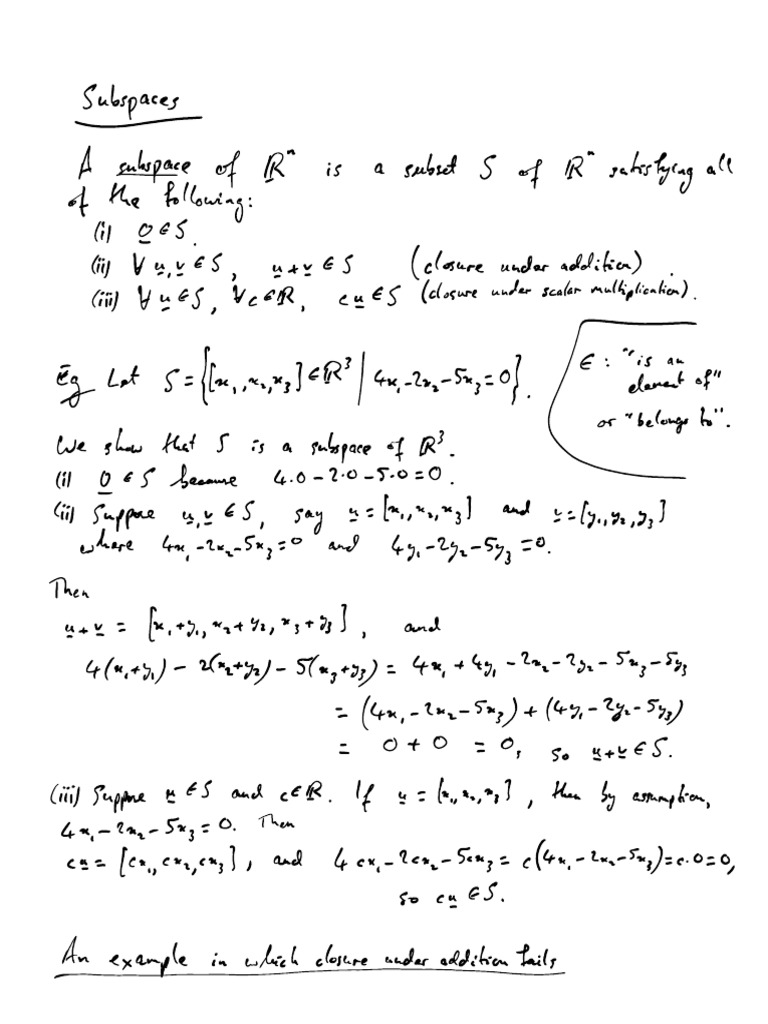 Subspaces
A subspace of ℝⁿ is a subset S of ℝⁿ satisfying all
of the following:
(i) 0 ∈ S.
(ii) ∀ u, v ∈ S, u + v ∈ S (closure under addition).
(iii) ∀ u ∈ S, ∀ c ∈ ℝ, cu ∈ S (closure under scalar multiplication).
Eg Let S = {[x₁, x₂, x₃] ∈ ℝ³ | 4x₁ - 2x₂ - 5x₃ = 0}.
∈ : "is an
element of"
or "belongs to".
We show that S is a subspace of ℝ³.
(i) 0 ∈ S because 4.0 - 2.0 - 5.0 = 0.
(ii) Suppose u, v ∈ S, say u = [x₁, x₂, x₃] and v = [y₁, y₂, y₃]
where 4x₁ - 2x₂ - 5x₃ = 0 and 4y₁ - 2y₂ - 5y₃ = 0.
Then
u + v = [x₁ + y₁, x₂ + y₂, x₃ + y₃], and
4(x₁ + y₁) - 2(x₂ + y₂) - 5(x₃ + y₃) = 4x₁ + 4y₁ - 2x₂ - 2y₂ - 5x₃ - 5y₃
= (4x₁ - 2x₂ - 5x₃) + (4y₁ - 2y₂ - 5y₃)
= 0 + 0 = 0, so u + v ∈ S.
(iii) Suppose u ∈ S and c ∈ ℝ. If u = [x₁, x₂, x₃], then by assumption,
4x₁ - 2x₂ - 5x₃ = 0. Then
cu = [cx₁, cx₂, cx₃], and 4cx₁ - 2cx₂ - 5cx₃ = c(4x₁ - 2x₂ - 5x₃) = c.0 = 0,
so cu ∈ S.
An example in which closure under addition fails